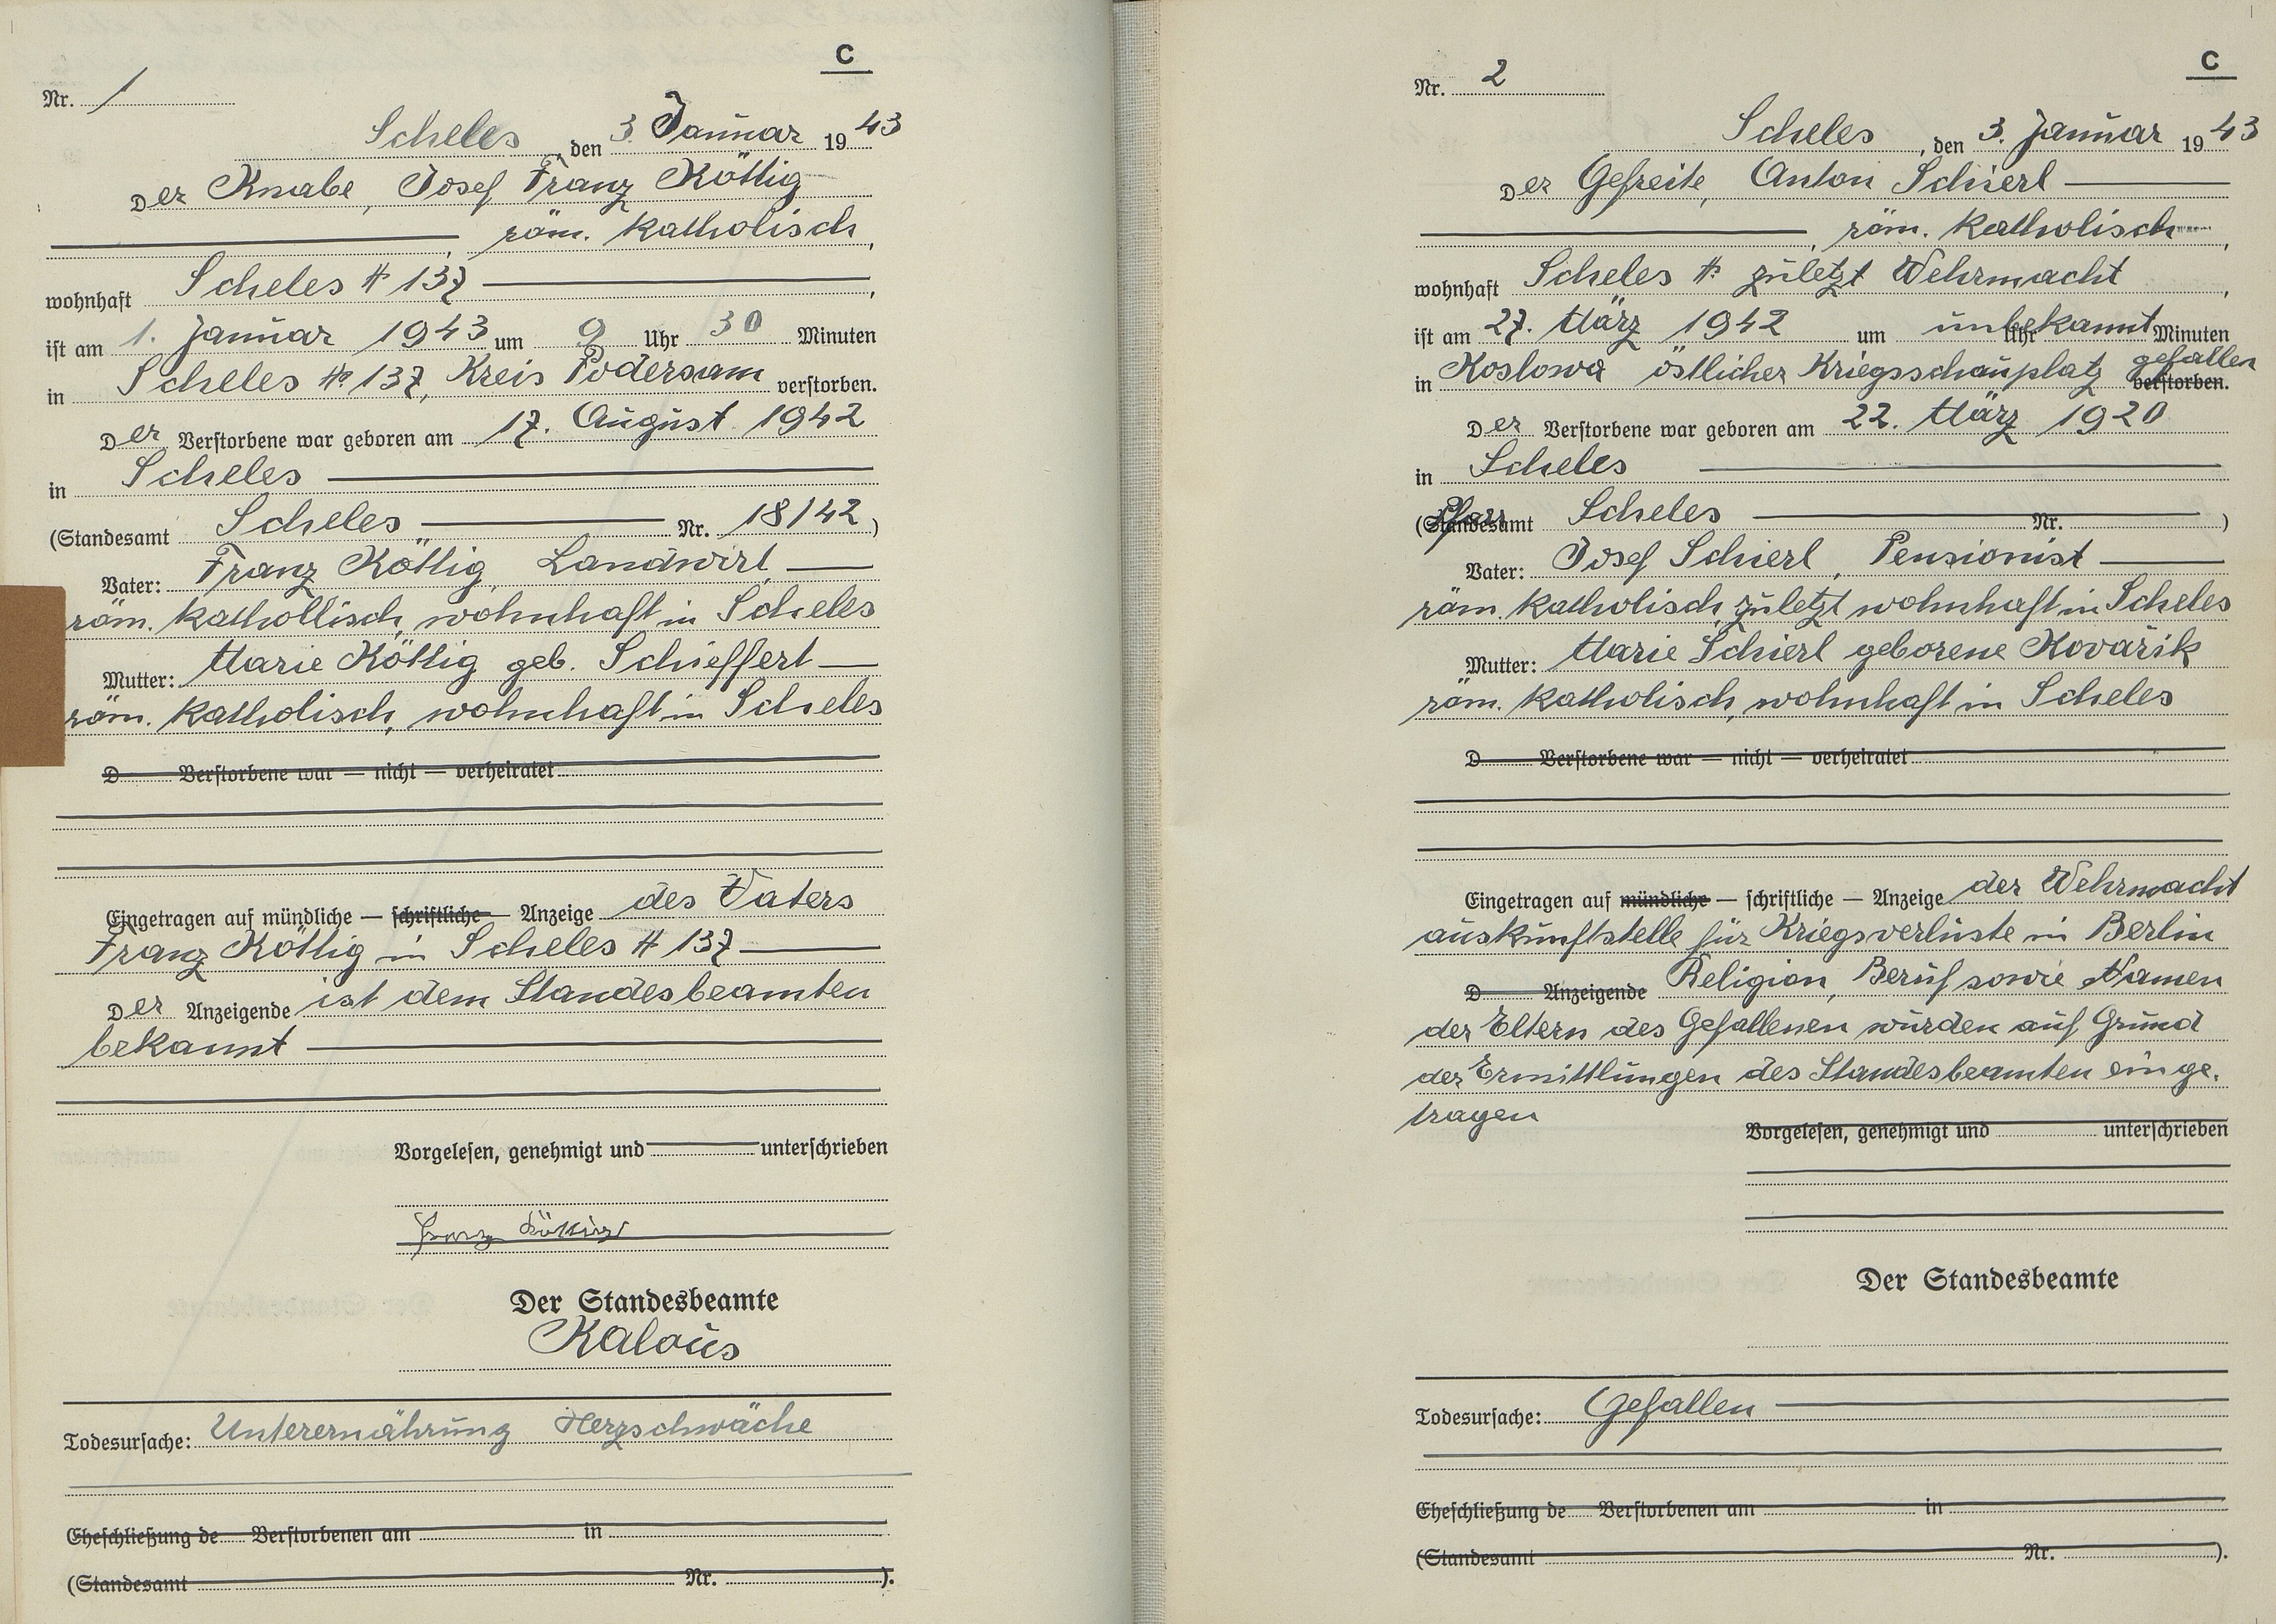 C
Nr. 1
Scheles, den 3. Januar 1943
Der Knabe, Josef Franz Köttig
röm. katholisch,
wohnhaft Scheles # 137,
ist am 1. Januar 1943 um 9 Uhr 30 Minuten
in Scheles № 137, Kreis Podersam verstorben.
Der Verstorbene war geboren am 17. August 1942
in Scheles
(Standesamt Scheles Nr. 18/42)
Vater: Franz Köttig, Landwirt
röm. kathollisch, wohnhaft in Scheles
Mutter: Marie Köttig geb. Schieffert
röm. katholisch, wohnhaft in Scheles
D Verstorbene war — nicht — verheiratet
Eingetragen auf mündliche — schriftliche — Anzeige des Vaters
Franz Köttig in Scheles # 137
Der Anzeigende ist dem Standesbeamten
bekannt
Vorgelesen, genehmigt und unterschrieben
Franz Köttig
Der Standesbeamte
Kalous
Todesursache: Unterernährung Herzschwäche
Eheschließung de Verstorbenen am in
(Standesamt Nr. ).
C
Nr. 2
Scheles, den 3. Januar 1943
Der Gefreite, Anton Schierl
, röm. katholisch,
wohnhaft Scheles #. zuletzt Wehrmacht,
ist am 27. März 1942 um unbekannt Uhr Minuten
in Koslowa östlicher Kriegsschauplatz gefallen verstorben.
Der Verstorbene war geboren am 22. März 1920
in Scheles
(Standesamt Pfarr Scheles Nr. )
Vater: Josef Schierl, Pensionist
röm. katholisch, zuletzt wohnhaft in Scheles
Mutter: Marie Schierl geborene Kovářik
röm. katholisch, wohnhaft in Scheles
D Verstorbene war — nicht — verheiratet
Eingetragen auf mündliche — schriftliche — Anzeige der Wehrmacht
auskunftstelle für Kriegsverluste in Berlin
D Anzeigende Religion, Beruf sowie Namen
der Eltern des Gefallenen wurden auf Grund
der Ermittlungen des Standesbeamten einge-
tragen
Vorgelesen, genehmigt und unterschrieben
Der Standesbeamte
Todesursache: Gefallen
Eheschließung de Verstorbenen am in
(Standesamt Nr. ).